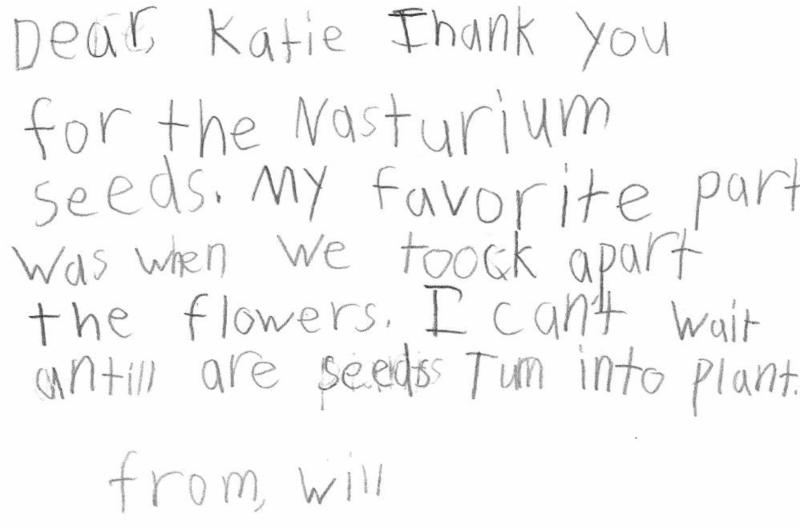 Dear, Katie Thank you
for the Nasturium
seeds. My favorite part
was when we toock apart
the flowers. I can't wait
antill are seeds Turn into plant.
from, will